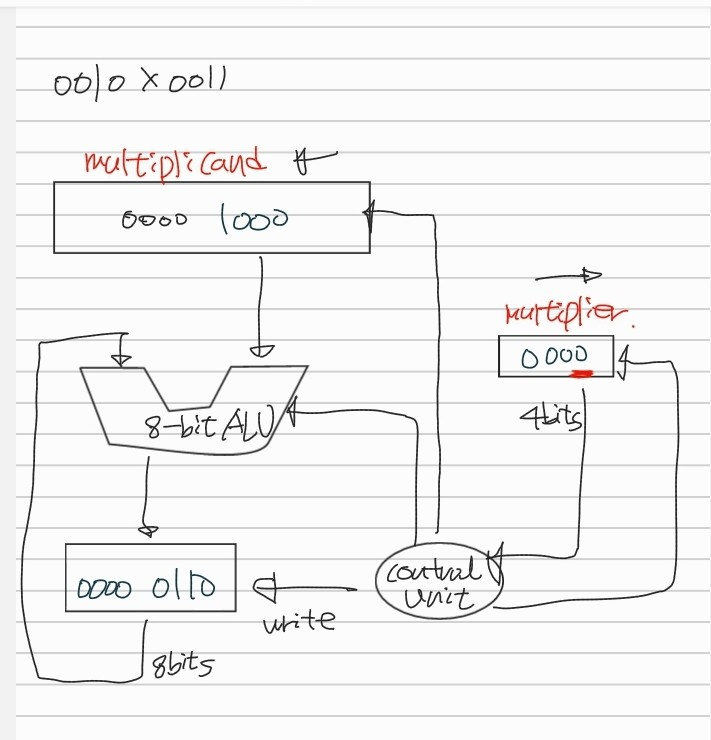 0010 × 0011
multiplicand ←
0000 1000
→
multiplier.
0000
8-bit ALU
4bits
control
unit
0000 0110
write
8bits